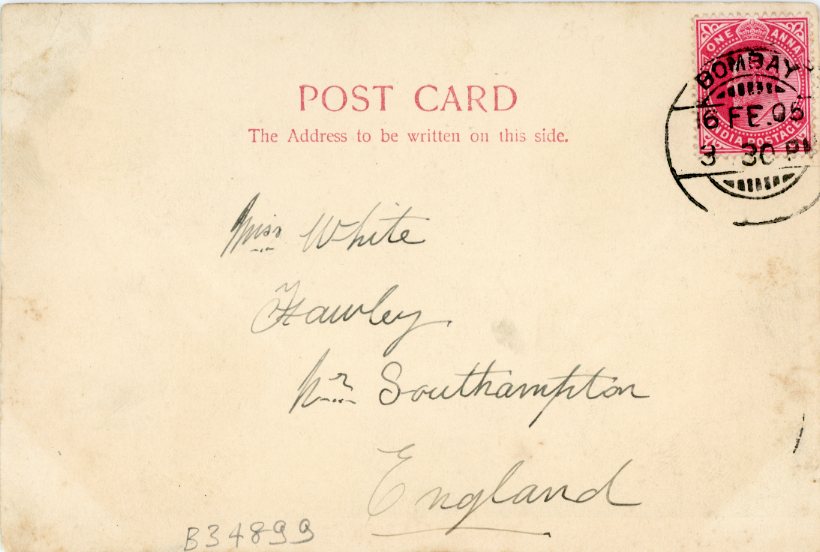 ONE ANNA
INDIA POSTAGE
BOMBAY
6 FE.06
3 30 PM
POST CARD
The Address to be written on this side.
Miss White
Fawley
Nr. Southampton
England
B34899